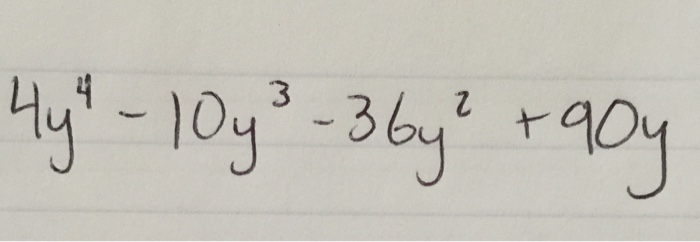 4y⁴ - 10y³ - 36y² + 90y